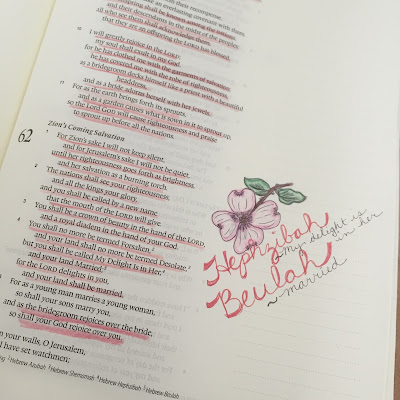 make an everlasting covenant with them.
offspring shall be known among the nations,
and their descendants in the midst of the peoples;
all who see them shall acknowledge them,
that they are an offspring the LORD has blessed.
10 I will greatly rejoice in the LORD;
my soul shall exult in my God,
for he has clothed me with the garments of salvation;
he has covered me with the robe of righteousness,
as a bridegroom decks himself like a priest with a beautiful
headdress,
and as a bride adorns herself with her jewels.
11 For as the earth brings forth its sprouts,
and as a garden causes what is sown in it to sprout up,
so the Lord GOD will cause righteousness and praise
to sprout up before all the nations.
Zion's Coming Salvation
62 1 For Zion's sake I will not keep silent,
and for Jerusalem's sake I will not be quiet,
until her righteousness goes forth as brightness,
and her salvation as a burning torch.
2 The nations shall see your righteousness,
and all the kings your glory,
and you shall be called by a new name
that the mouth of the LORD will give.
3 You shall be a crown of beauty in the hand of the LORD,
and a royal diadem in the hand of your God.
4 You shall no more be termed Forsaken,1
and your land shall no more be termed Desolate,2
but you shall be called My Delight Is in Her,3
and your land Married;4
for the LORD delights in you,
and your land shall be married.
5 For as a young man marries a young woman,
so shall your sons marry you,
and as the bridegroom rejoices over the bride,
so shall your God rejoice over you.
On your walls, O Jerusalem,
I have set watchmen;
1 Hebrew Azubah 2 Hebrew Shemamah 3 Hebrew Hephzibah 4 Hebrew Beulah
Hephzibah
~ My delight is
in her
Beulah
~ married